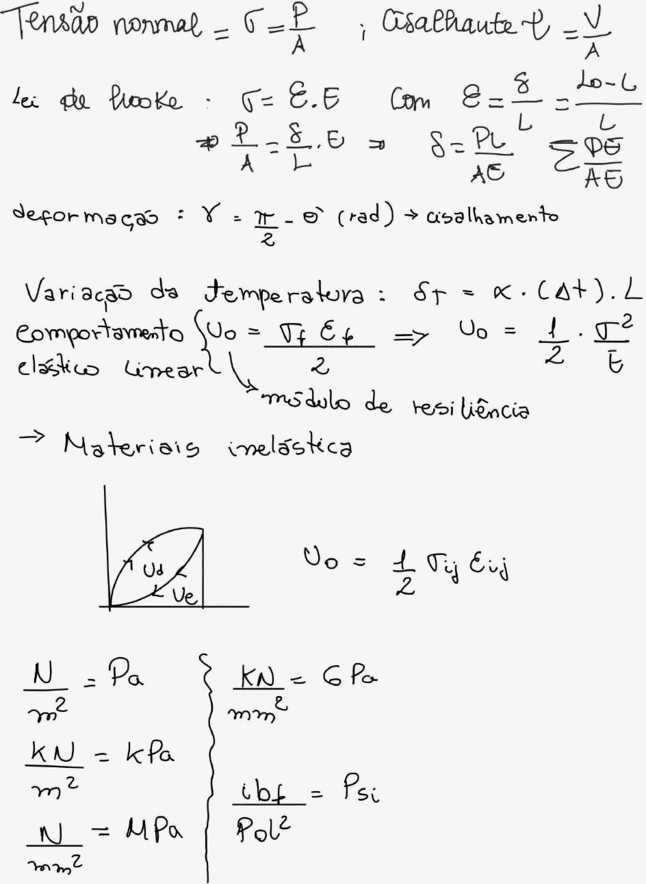 Tensão normal = σ = P/A ; Cisalhante τ = V/A
Lei de hooke : σ = ε.E Com ε = δ/L = Lo-L/L
⇒ P/A = δ/L . E ⇒ δ = PL/AE Σ PE/AE
deformação : γ = π/2 - θ' (rad) → cisalhamento
Variação da temperatura : δT = α . (Δt) . L
comportamento elástico linear { Uo = σf εf / 2 ⇒ Uo = 1/2 . σ²/E
módulo de resiliência
→ Materiais inelástica
Ud
Ue
Uo = 1/2 σij εij
N/m² = Pa
kN/m² = kPa
N/mm² = MPa
kN/mm² = GPa
ibf/Pol² = Psi